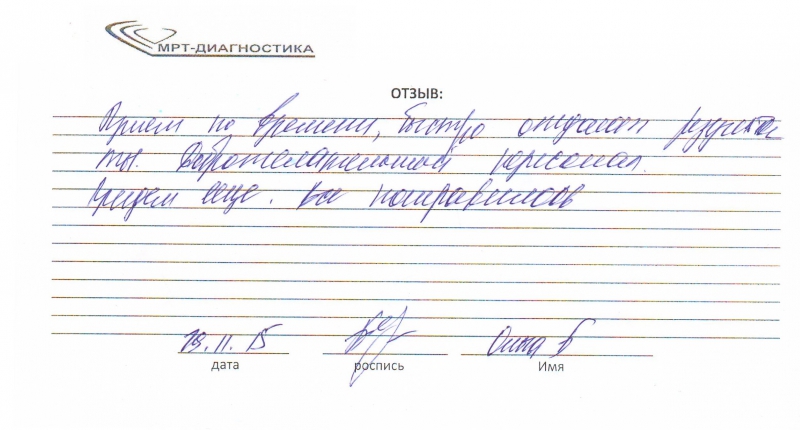 МРТ-ДИАГНОСТИКА
ОТЗЫВ:
Прием по времени, быстро отдают результа
ты. Доброжелательный персонал.
Придем еще. Все понравилось
19.11.15
дата
роспись
Имя